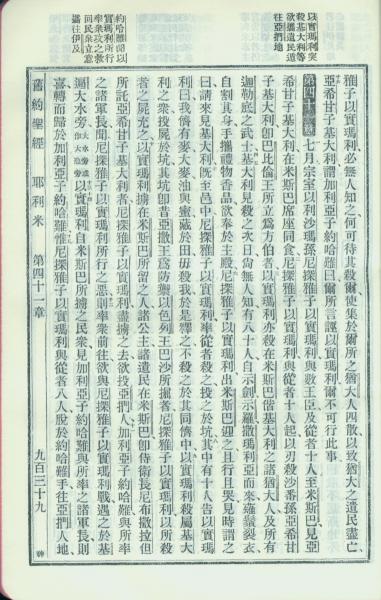 以實瑪利突
殺基大利等
欲擄遺民遁
往亞捫地
約哈難聞以
實瑪利所行
率衆攻之救
回民衆立意
遷往伊及
雅子以實瑪利、必無人知之、何可待其殺爾、使集於爾所之猶大人四散、以致猶大之遺民盡亡、
亞希甘子基大利謂加利亞子約哈難曰、爾所言誣以實瑪利、爾不可行此事、
第四十一章 七月、宗室以利沙瑪孫尼探雅子以實瑪利、與數王臣及從者十人、至米斯巴、見亞
希甘子基大利、在米斯巴席座同食、尼探雅子以實瑪利、與從者十人起、以刃殺沙番孫亞希甘
子基大利、卽巴比倫王所立爲方伯者、以實瑪利亦殺在米斯巴偕基大利之諸猶大人、及所有
迦勒底之武士、基大利見殺之次日、尙無人知、有八十人自示劍示羅撒瑪利亞而來、薙鬚裂衣、
自割其身、手攜禮物香品、欲奉於主殿、尼探雅子以實瑪利出米斯巴迎之、且行且哭、見時謂之
曰、請來見基大利、旣至邑中、尼探雅子以實瑪利、率從者殺之、投之於坑、其中有十人告以實瑪
利曰、我儕有麥大麥油與蜜、藏於田、毋殺我、於是釋之不殺之於其同儕中、以實瑪利殺屬基大
利之衆、投屍於坑、其坑卽昔亞撒王爲防禦以色列王巴沙所掘者、尼探雅子以實瑪利、以所殺
者之屍充之、以實瑪利擄在米斯巴所留之人、諸公主、諸遺民在米斯巴、卽侍衛長尼布撒拉但
所託亞希甘子基大利者、尼探雅子以實瑪利盡擄之去、欲投亞捫人、加利亞子約哈難、與所率
之諸軍長、聞尼探雅子以實瑪利所行之惡、則率衆前往、欲與尼探雅子以實瑪利戰、遇之於基
遍大水旁、以實瑪利自米斯巴所擄之民衆、見加利亞子約哈難、與所率之諸軍長、則
喜、轉而歸於加利亞子約哈難、惟尼探雅子以實瑪利、與從者八人、脫於約哈難手、往亞捫人地、
舊約聖經 耶利米 第四十一章 九百三十九